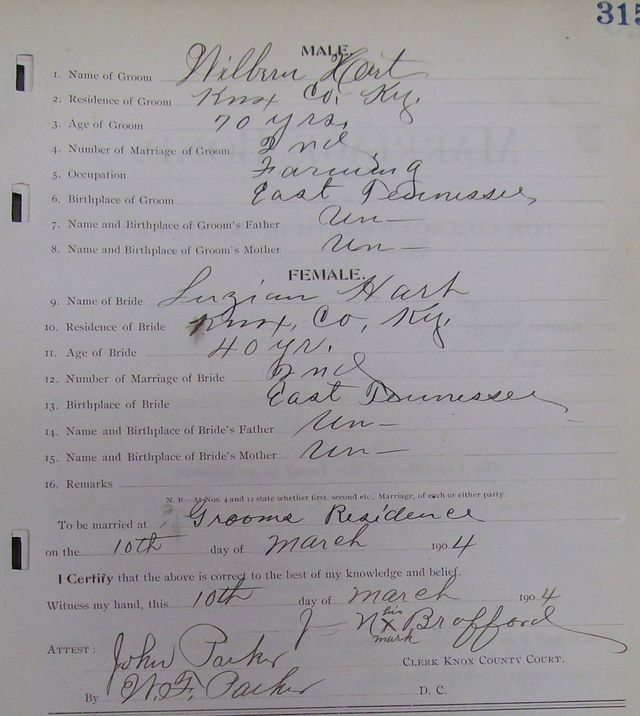 315
MALE.
1. Name of Groom Wilbern Hart
2. Residence of Groom Knox Co, Ky.
3. Age of Groom 70 yrs.
4. Number of Marriage of Groom 2nd
5. Occupation Farming
6. Birthplace of Groom East Tennessee
7. Name and Birthplace of Groom's Father Un—
8. Name and Birthplace of Groom's Mother Un—
FEMALE.
9. Name of Bride Luzian Hart
10. Residence of Bride Knox, Co, Ky.
11. Age of Bride 40 yr.
12. Number of Marriage of Bride 2nd
13. Birthplace of Bride East Tennessee
14. Name and Birthplace of Bride's Father Un—
15. Name and Birthplace of Bride's Mother Un—
16. Remarks
N. B.—At Nos. 4 and 12 state whether first, second etc., Marriage, of each or either party.
To be married at Grooms Residence
on the 10th day of March 1904
I Certify that the above is correct to the best of my knowledge and belief.
Witness my hand, this 10th day of March 1904
J— N his x mark Brofford
ATTEST: John Parker CLERK KNOX COUNTY COURT.
By W. F. Parker D. C.